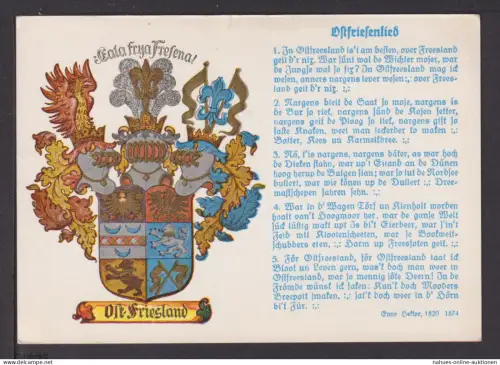 Eala frya Fresena!
Ost-Friesland
Ostfriesenlied
1. In Ostfreesland is't am besten, over Freesland
geit d'r nix. War sünt wal de Wichter mojer, war
de Jungse wal so fix? In Ostfreesland mag ik
wesen, anners nargens lever wesen; over Frees-
land geit d'r nix.
2. Nargens bleit de Saat so moje, nargens is
de Bur so riek, nargens sünd de Kojen fetter,
nargens geit de Ploog so liek, nargens gift so
faste Knaken, weet man leckerder to maken :,:
Botter, Kees un Karmelkbree. :,:
3. Nä, t'is nargens, nargens bäter, as war hoch
de Dieken stahn, war up't Eiland an de Dünen
hoog herup de Bulgen slan; war so lut de Nordsee
bullert, war wie könen up de Dullert :,: Dree-
mastschepen fahren sehn. :,:
4. War in d' Wagen Törf un Kienholt worden
haalt van't Hoogmoor her, war de ganse Welt
sück lüstig makt upt Is bi't Eierbeer, war s'in't
Feld wil Klootenscheeten, war se Bookweit-
schubbers eten, :,: Harm up Freesloten geil. :,:
5. För Ostfreesland, för Ostfreesland laat ick
Bloot un Leven gern, was't doch man weer in
Ostfreesland, war so mennig söte Deern! In de
Frömde wünsk ick faken: Kun't doch Mooders
Breepott smaken, :,: sat't doch weer in d' Hörn
bi't Für. :,:
Enno Hektor, 1820 1874
nahues-onlineshop.de - www.delcampe.net